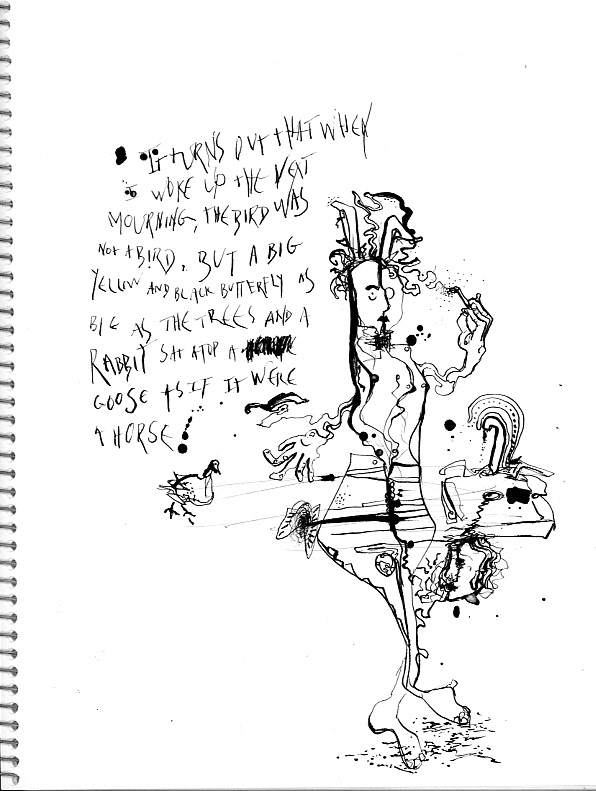 IT TURNS OUT THAT WHEN
I WOKE UP THE NEXT
MOURNING, THE BIRD WAS
NOT A BIRD, BUT A BIG
YELLOW AND BLACK BUTTERFLY AS
BIG AS THE TREES AND A
RABBIT SAT ATOP A
GOOSE AS IF IT WERE
A HORSE